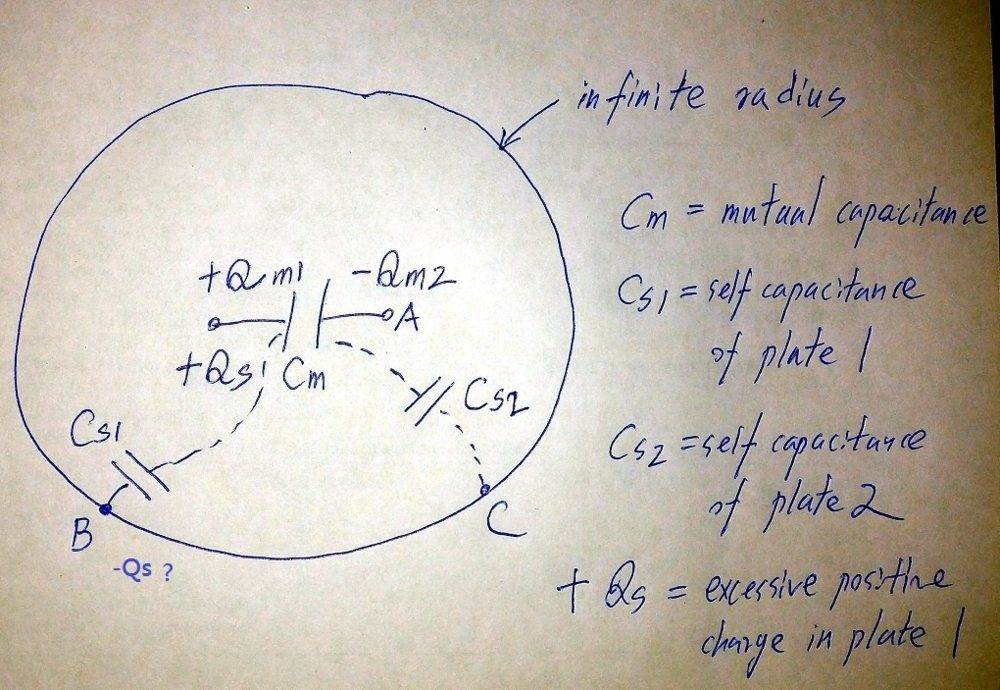 infinite radius
Cm = mutual capacitance
+Qm1 -Qm2
A
Cs1 = self capacitance
of plate 1
+Qs Cm
Cs2
Cs1
Cs2 = self capacitance
of plate 2
B
C
-Qs ?
+ Qs = excessive positive
charge in plate 1